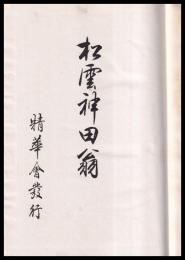 松雲神田翁
精華會發行